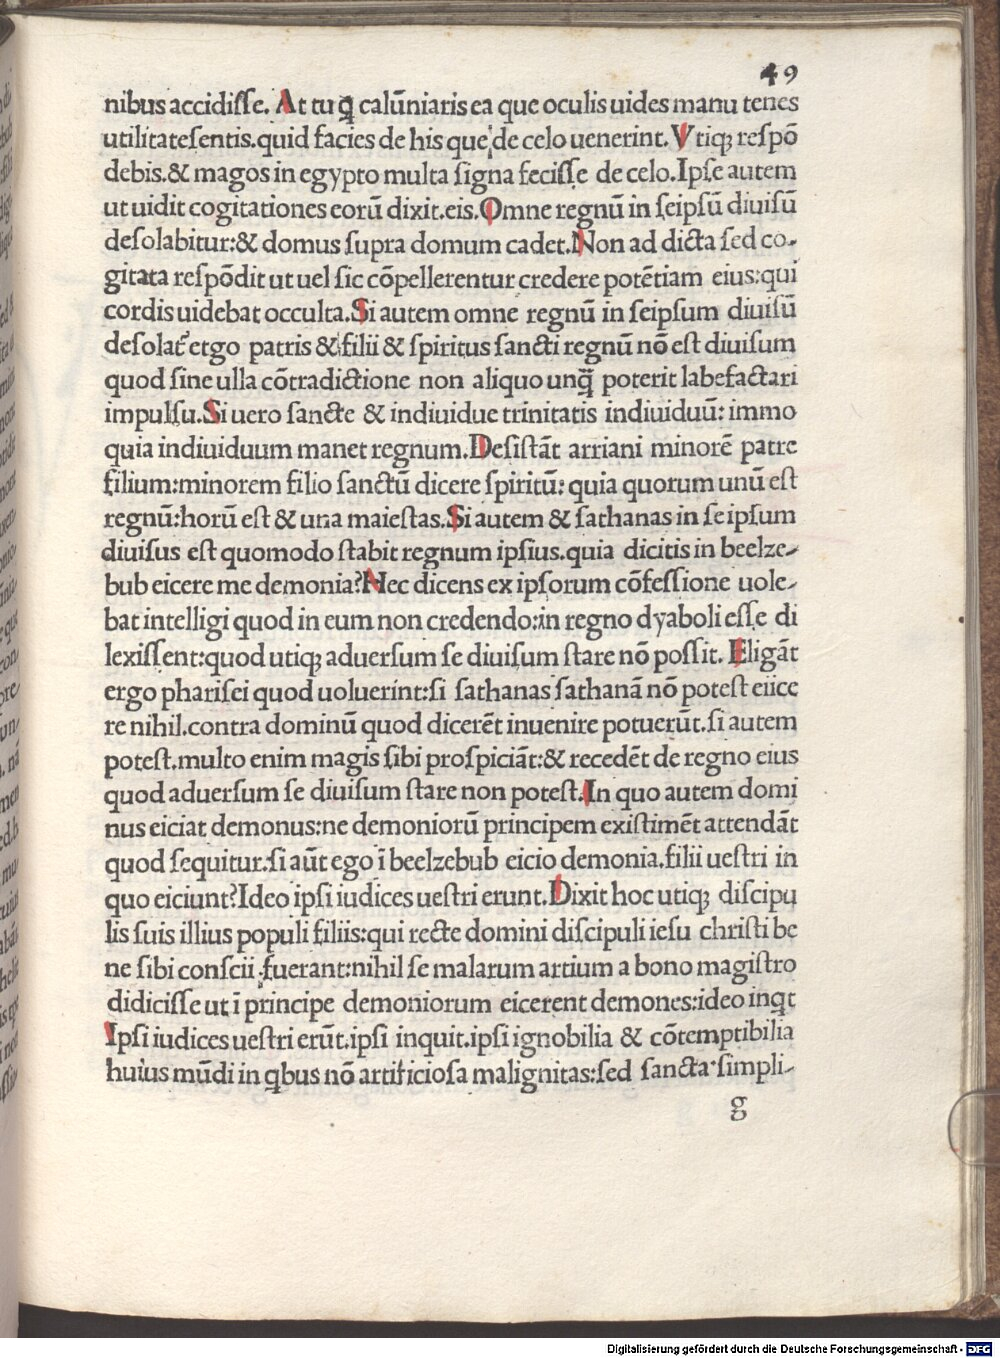 49
nibus accidisse. At tu q̄ calūniaris ea que oculis uides manu tenes
utilitate sentis. quid facies de his que de celo uenerint. Vtiqꝫ respō
debis. & magos in egypto multa signa fecisse de celo. Ipse autem
ut uidit cogitationes eorū dixit. eis. Omne regnū in seipsū diuisū
desolabitur: & domus supra domum cadet. Non ad dicta sed co-
gitata respōdit ut uel sic cōpellerentur credere potētiam eius: qui
cordis uidebat occulta. Si autem omne regnū in seipsum diuisū
desolat᷑ ergo patris & filii & spiritus sancti regnū nō est diuisum
quod sine ulla cōtradictione non aliquo unq̄ poterit labefactari
impulsu. Si uero sancte & indiuidue trinitatis indiuiduū: immo
quia indiuiduum manet regnum. Desistāt arriani minorē patre
filium: minorem filio sanctū dicere spiritū: quia quorum unū est
regnū: horū est & una maiestas. Si autem & sathanas in seipsum
diuisus est quomodo stabit regnum ipsius. quia dicitis in beelze-
bub eicere me demonia? Hec dicens ex ipsorum cōfessione uole-
bat intelligi quod in eum non credendo: in regno dyaboli esse di
lexissent: quod utiqꝫ aduersum se diuisum stare nō possit. Eligāt
ergo pharisei quod uoluerint: si sathanas sathanā nō potest eiice
re nihil. contra dominū quod dicerēt inuenire potuerūt. si autem
potest. multo enim magis sibi prospiciāt: & recedēt de regno eius
quod aduersum se diuisum stare non potest. In quo autem domi
nus eiciat demonus: ne demoniorū principem existimēt attendāt
quod sequitur. si aūt ego ī beelzebub eicio demonia. filii uestri in
quo eiciunt? Ideo ipsi iudices uestri erunt. Dixit hoc utiqꝫ discipu
lis suis illius populi filiis: qui recte domini discipuli iesu christi be
ne sibi conscii fuerant: nihil se malarum artium a bono magistro
didicisse ut ī principe demoniorum eicerent demones: ideo inqt
Ipsi iudices uestri erūt. ipsi inquit. ipsi ignobilia & cōtemptibilia
huius mūdi in qbus nō artificiosa malignitas: sed sancta simpli-
g
Digitalisierung gefördert durch die Deutsche Forschungsgemeinschaft - DFG